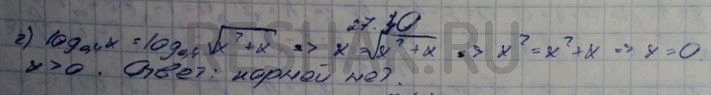 27.30
г) log₀,₁x = log₀,₁√x²+x => x = √x²+x => x² = x²+x => x=0.
x>0. Ответ: корней нет.
RESHAK.RU